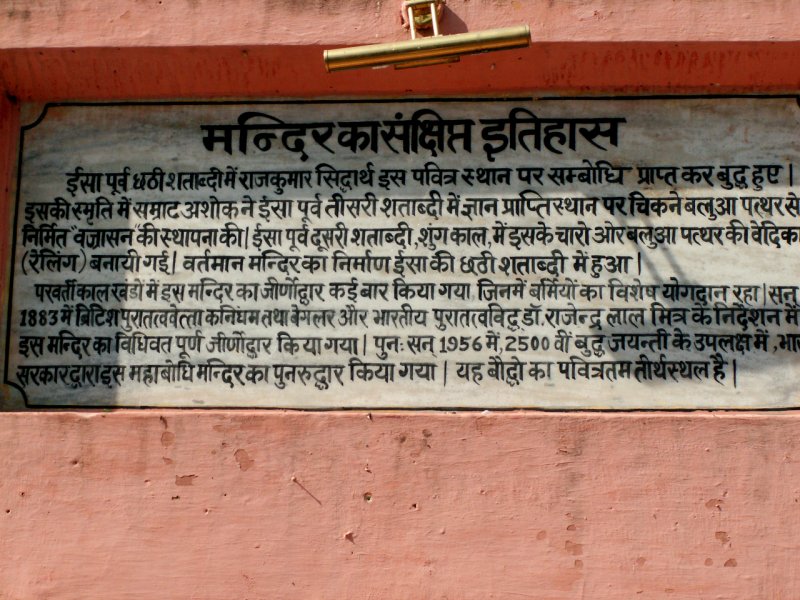 मन्दिर का संक्षिप्त इतिहास
ईसा पूर्व छठी शताब्दी में राजकुमार सिद्धार्थ इस पवित्र स्थान पर सम्बोधि प्राप्त कर बुद्ध हुए |
इसकी स्मृति में सम्राट अशोक ने ईसा पूर्व तीसरी शताब्दी में ज्ञान प्राप्ति स्थान पर चिकने बलुआ पत्थर से
निर्मित "वज्रासन" की स्थापना की | ईसा पूर्व दूसरी शताब्दी, शुंग काल, में इसके चारो ओर बलुआ पत्थर की वेदिका
(रेलिंग) बनायी गई | वर्तमान मन्दिर का निर्माण ईसा की छठी शताब्दी में हुआ |
परवर्ती काल खंडों में इस मन्दिर का जीर्णोद्धार कई बार किया गया जिनमें बर्मियों का विशेष योगदान रहा | सन्
1883 में ब्रिटिश पुरातत्ववेत्त्ता कनिंघम तथा बेगलर और भारतीय पुरातत्वविद् डॉ. राजेन्द्र लाल मित्र के निर्देशन में
इस मन्दिर का विधिवत पूर्ण जीर्णोद्धार किया गया | पुनः सन् 1956 में, 2500 वीं बुद्ध जयन्ती के उपलक्ष में,
सरकार द्वारा इस महाबोधि मन्दिर का पुनरुद्धार किया गया | यह बौद्धो का पवित्रतम तीर्थस्थल है |